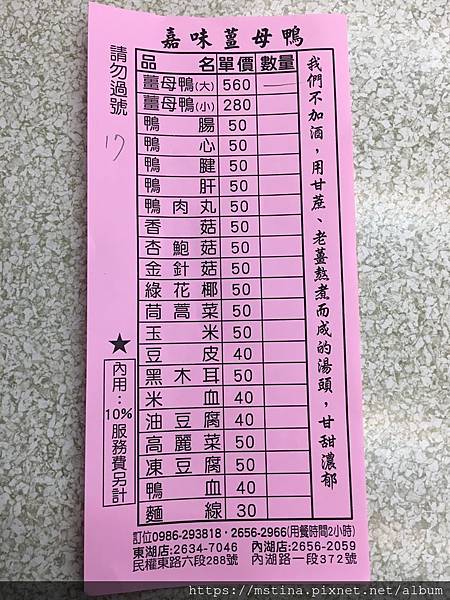 嘉味薑母鴨
請勿過號
17
品名 單價 數量
薑母鴨(大) 560
薑母鴨(小) 280
鴨腸 50
鴨心 50
鴨腱 50
鴨肝 50
鴨肉丸 50
香菇 50
杏鮑菇 50
金針菇 50
綠花椰 50
茼蒿菜 50
玉米 50
豆皮 40
黑木耳 50
米血 40
油豆腐 40
高麗菜 50
凍豆腐 50
鴨血 40
麵線 30
我們不加酒，用甘蔗、老薑熬煮而成的湯頭，甘甜濃郁
★內用：10%服務費另計
訂位0986-293818・2656-2966(用餐時間2小時)
東湖店:2634-7046 內湖店:2656-2059
民權東路六段288號 內湖路一段372號
https://mstina.pixnet.net/album